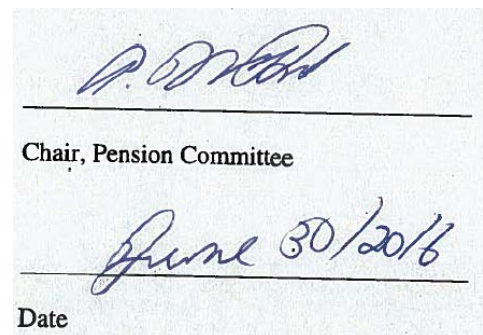 Chair, Pension Committee
June 30/2016
Date